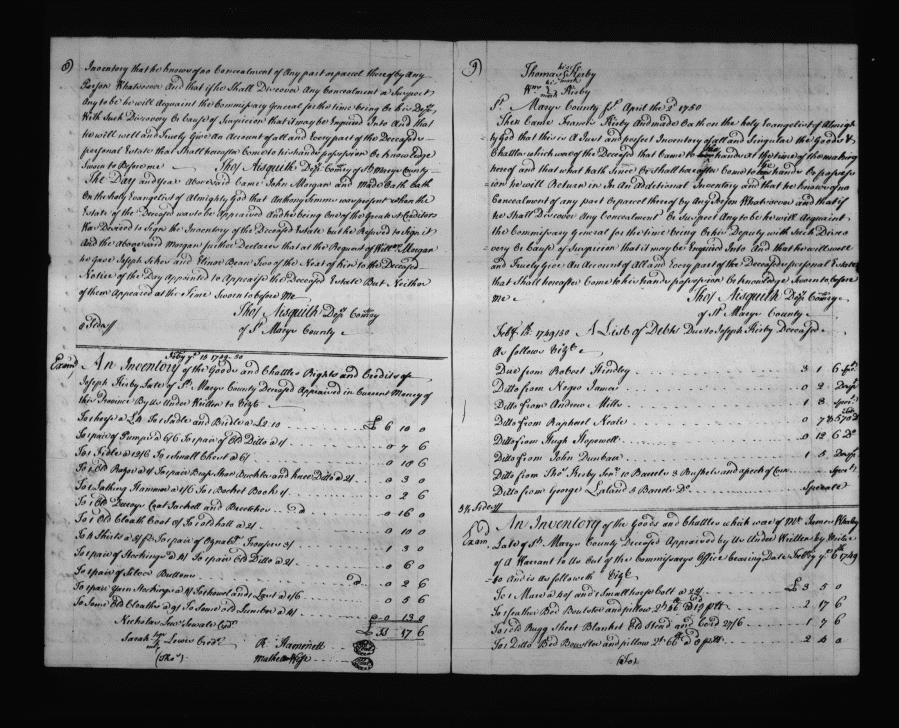 8)
Inventory that he knows of no Concealment of Any part or parcel thereof by Any
Person Whatsoever And that if he Shall Discover Any Concealment or Suspect
Any to be he will Acquaint the Commissary General for the time being or his Depty
With Such Discovery & Cause of Suspicion that it may be Enquired Into And that
he will well and Truely Give An Account of all and Every part of the Deceased
personal Estate that Shall hereafter Come to his hands possession or knowledge
Sworn to Before me Thos Aisquith Depy Comry of St Marys County
The Day and year Above said Came John Morgan and Made Oath
On the Holy Evangelist of Almighty God that was present when the
Estate of the Deceased was to be Appraised And he being One of the Greatest Creditors
Was Desired to Sign the Inventory of the Deceased Estate but he Refused to Sign it
And the Above said Morgan further Declares that at the Request of Morgan
he gave Joseph and Elinor Bean Two of the Next of kin to the Deceased
Notice of the Day Appointed to Appraise the Deceased Estate But Neither
of them Appeared at the Time Sworn to before Me
Thos Aisquith Depy Comry
of St Marys County
6 Sides//
Feby ye 15 1749-50
Examd An Inventory of the Goods and Chattles Rights and Credits of
Joseph Kirby Late of St Marys County Deceased Appraised in Current Money of
this Province By Us Under Written to Vizt
To 1 horse a £4 To 1 Sadle and Bridle a £2.10 £ 6 10 0
To 1 pair of Pumps a 6/6 To 1 pair of Old Ditto a 1/ 0 7 6
To 1 Fidle a 12/6 To 1 Small Chest a 6/ 0 18 6
To 1 Old Razor a 1/ To 1 pair Brass Shoe Buckles and knee Ditto a 2/ 0 3 0
To 1 Lathing Hammer a 1/6 To 1 Pocket Book 1/ 0 2 6
To 1 Old Coat Jackett and Breeches 0 16 0
To 1 Old Cloath Coat To 1 old hatt a 2/ 0 10 0
To 4 Shirts To 1 pair of Oznabr Trousers 3/ 1 3 0
To 1 pair of Stockings a 4/ To 1 pair Old Ditto a 2/ 0 6 0
To 1 pair of Silver Buttons 0 2 6
To 1 pair Yarn Stockings a 4/ To 1 a 1/6 0 5 6
To Some Old Cloaths a 9/ To Some old Lumber a 4/ 0 13 0
Nicholas Sewall £ 17 6
Sarah Lewis Credr R. Hammett
mark Mathew Wise
(Sks)
9)
Thomas his mark Kirby
Wm his mark Kirby
St Marys County Sct April the 2d 1750
Then Came Francis Kirby And made Oath on the holy Evangelist of Almigh
ty God that this is A Just and perfect Inventory of all and Singular the Goods &
Chattles which was of the Deceased that Came to his hands at the time of the making
hereof and that what hath Since or Shall hereafter Come to his hands or possess
ion he will Return in In An Additional Inventory and that he knows of no
Concealment of any part or parcel thereof by Any Person Whatsoever and that if
he Shall Discover Any Concealment or Suspect Any to be he will Acquaint
the Commissary General for the time being or his Deputy with Such Disco
very & Cause of Suspicion that it may be Enquired Into And that he will well
and Truely Give An Account of All and Every part of the Deceased personal Estate
that Shall hereafter Come to his hands possession or knowledge Sworn to before
me Thos Aisquith Depy Comry
of St Marys County
Feby 1749/50 A List of Debts Due to Joseph Kirby Deceased
As follows Vizt
Due from Robert Hindley 3 1 6 Spt
Ditto from Negro James 0 2 Despt
Ditto from Andrew Mills 1 8 Spert
Ditto from Raphael Neale 0 7
Ditto from Hugh Hopewell 0 12 6 Do
Ditto from John Dunbarr 1 5 Despt
Ditto from Thos Kirby Senr 10 Barrels 3 Bushels and a peck of Corn Spert
Ditto from George Laland 3 Barrels Do Sperate
3½ Sides//
Examd An Inventory of the Goods and Chattles which was of Mr James
Late of St Marys County Deceased Appraised by Us Under Written by Vertue
of A Warrant to Us Out of the Commissarys Office bearing Date Febby ye 6th 1749
to And is as followeth Vizt
To 1 Mare and 1 Small horse Colt a £ 3 5 0
To 1 feather Bed Boulster and pillow 2 17 6
To 1 old Rugg Sheet Blanket Old Stead and Cord 27/6 1 7 6
To 1 Ditto Bed Bowlster and pillow 2 4 0